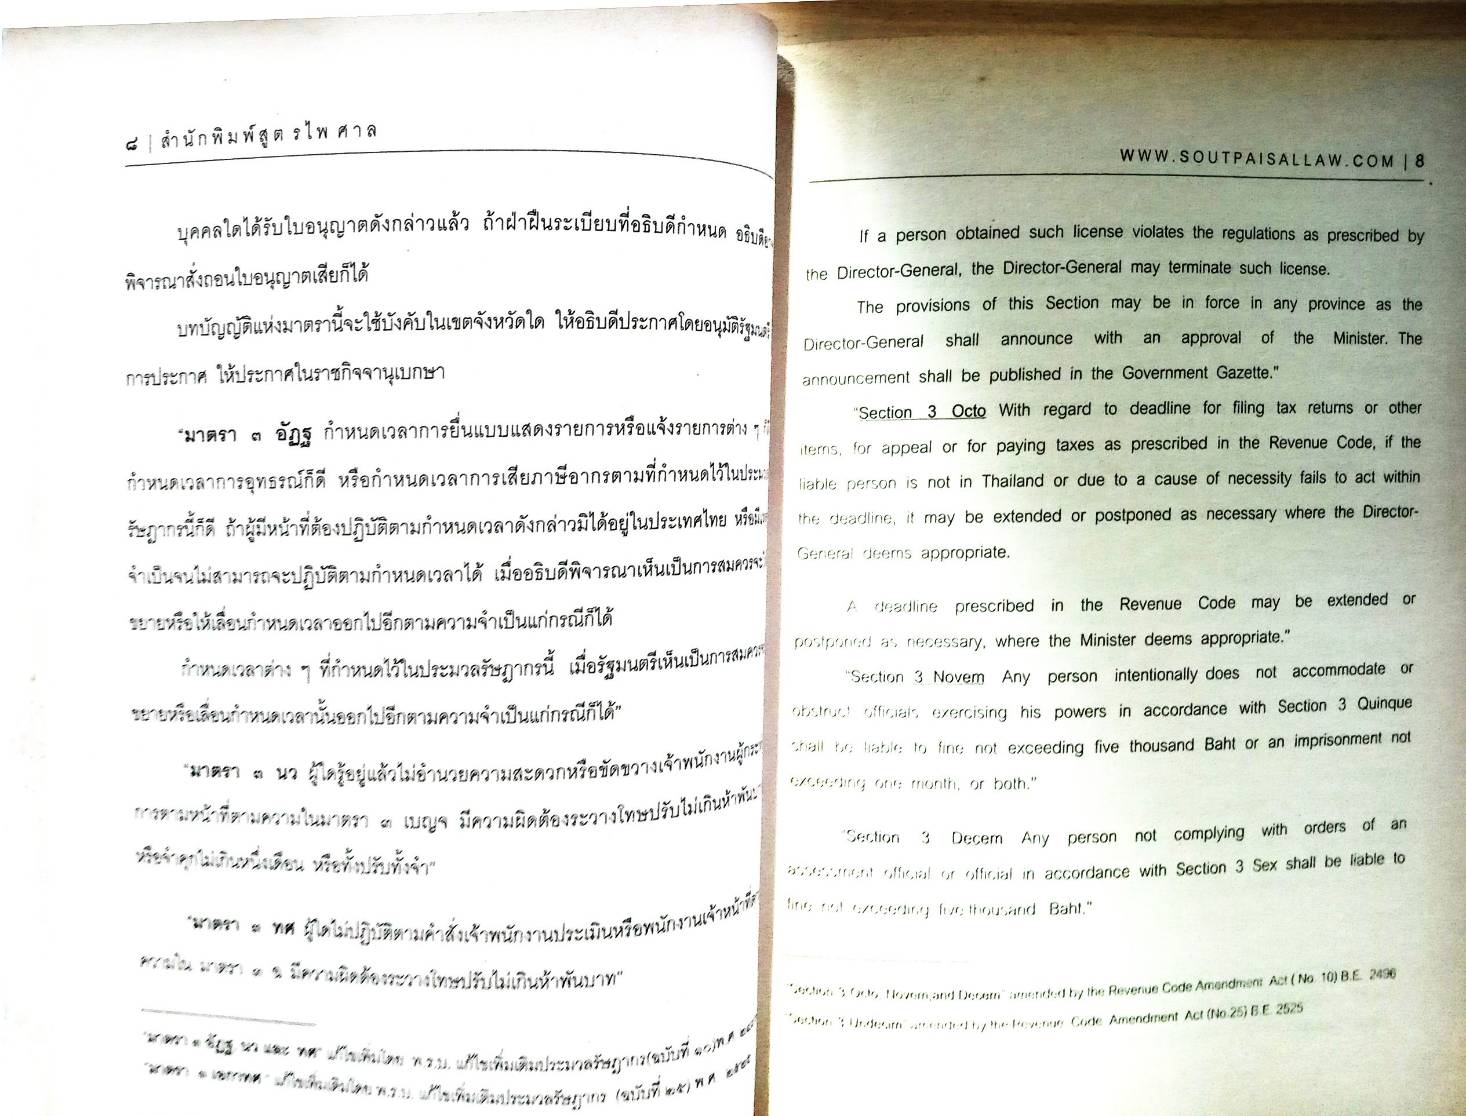 ๘ | สำนักพิมพ์สูตรไพศาล
บุคคลใดได้รับใบอนุญาตดังกล่าวแล้ว ถ้าฝ่าฝืนระเบียบที่อธิบดีกำหนด อธิบดี
พิจารณาสั่งถอนใบอนุญาตเสียก็ได้
บทบัญญัติแห่งมาตรานี้จะใช้บังคับในเขตจังหวัดใด ให้อธิบดีประกาศโดยอนุมัติรัฐมนตรี
การประกาศ ให้ประกาศในราชกิจจานุเบกษา
"มาตรา ๓ อัฏฐ กำหนดเวลาการยื่นแบบแสดงรายการหรือแจ้งรายการต่าง ๆ
กำหนดเวลาการอุทธรณ์ก็ดี หรือกำหนดเวลาการเสียภาษีอากรตามที่กำหนดไว้ในประมวล
รัษฎากรนี้ก็ดี ถ้าผู้มีหน้าที่ต้องปฏิบัติตามกำหนดเวลาดังกล่าวมิได้อยู่ในประเทศไทย หรือ
จำเป็นจนไม่สามารถจะปฏิบัติตามกำหนดเวลาได้ เมื่ออธิบดีพิจารณาเห็นเป็นการสมควรจะ
ขยายหรือให้เลื่อนกำหนดเวลาออกไปอีกตามความจำเป็นแก่กรณีก็ได้
กำหนดเวลาต่าง ๆ ที่กำหนดไว้ในประมวลรัษฎากรนี้ เมื่อรัฐมนตรีเห็นเป็นการสมควร
ขยายหรือเลื่อนกำหนดเวลานั้นออกไปอีกตามความจำเป็นแก่กรณีก็ได้"
"มาตรา ๓ นว ผู้ใดรู้อยู่แล้วไม่อำนวยความสะดวกหรือขัดขวางเจ้าพนักงานผู้กระทำ
การตามหน้าที่ตามความในมาตรา ๓ เบญจ มีความผิดต้องระวางโทษปรับไม่เกินห้าพันบาท
หรือจำคุกไม่เกินหนึ่งเดือน หรือทั้งปรับทั้งจำ"
"มาตรา ๓ ทศ ผู้ใดไม่ปฏิบัติตามคำสั่งเจ้าพนักงานประเมินหรือพนักงานเจ้าหน้าที่
ความใน มาตรา ๓ ฉ มีความผิดต้องระวางโทษปรับไม่เกินห้าพันบาท"
"มาตรา ๓ อัฏฐ นว และ ทศ" แก้ไขเพิ่มโดย พ.ร.บ. แก้ไขเพิ่มเติมประมวลรัษฎากร(ฉบับที่ ๑๐)พ.ศ.
"มาตรา ๓ เอกาทศ" แก้ไขเพิ่มเติมโดย พ.ร.บ. แก้ไขเพิ่มเติมประมวลรัษฎากร (ฉบับที่ ๒๕) พ.ศ. ๒๕๒๕
WWW.SOUTPAISALLAW.COM | 8
If a person obtained such license violates the regulations as prescribed by
the Director-General, the Director-General may terminate such license.
The provisions of this Section may be in force in any province as the
Director-General shall announce with an approval of the Minister. The
announcement shall be published in the Government Gazette."
"Section 3 Octo With regard to deadline for filing tax returns or other
items, for appeal or for paying taxes as prescribed in the Revenue Code, if the
liable person is not in Thailand or due to a cause of necessity fails to act within
the deadline, it may be extended or postponed as necessary where the Director-
General deems appropriate.
A deadline prescribed in the Revenue Code may be extended or
postponed as necessary, where the Minister deems appropriate."
"Section 3 Novem Any person intentionally does not accommodate or
obstruct officials exercising his powers in accordance with Section 3 Quinque
shall be liable to fine not exceeding five thousand Baht or an imprisonment not
exceeding one month, or both."
"Section 3 Decem Any person not complying with orders of an
assessment official or official in accordance with Section 3 Sex shall be liable to
fine not exceeding five thousand Baht."
"Section 3 Octo, Novem,and Decem" amended by the Revenue Code Amendment Act ( No. 10) B.E. 2496
"Section 3 Undecim" amended by the Revenue Code Amendment Act (No.25) B.E. 2525